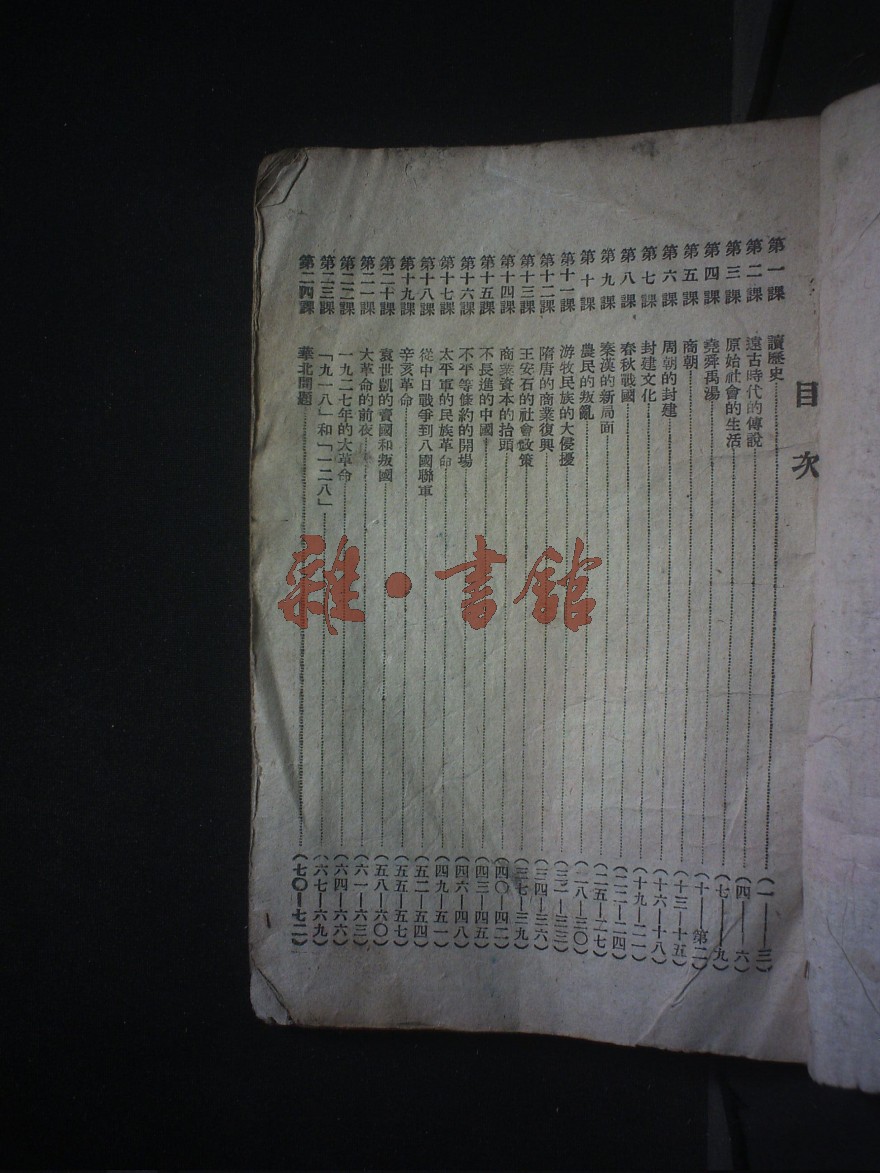 目次
第一課 讀歷史（一——三）
第二課 遠古時代的傳說（四——六）
第三課 原始社會的生活（七——九）
第四課 堯舜禹湯（十——第二）
第五課 商朝（十三—十五）
第六課 周朝的封建（十六—十八）
第七課 封建文化（十九—二一）
第八課 春秋戰國（二二—二四）
第九課 秦漢的新局面（二五—二七）
第十課 農民的叛亂（二八—三〇）
第十一課 游牧民族的大侵擾（三一—三三）
第十二課 隋唐的商業復興（三四—三六）
第十三課 王安石的社會政策（三七—三九）
第十四課 商業資本的抬頭（四〇—四二）
第十五課 不長進的中國（四三—四五）
第十六課 不平等條約的開場（四六—四八）
第十七課 太平軍的民族革命（四九—五一）
第十八課 從中日戰爭到八國聯軍（五二—五四）
第十九課 辛亥革命（五五—五七）
第二十課 袁世凱的賣國和叛國（五八—六〇）
第二一課 大革命的前夜（六一—六三）
第二二課 一九二七年的大革命（六四—六六）
第二三課 「九一八」和「一二八」（六七—六九）
第二四課 華北問題（七〇—七二）
雜·書館